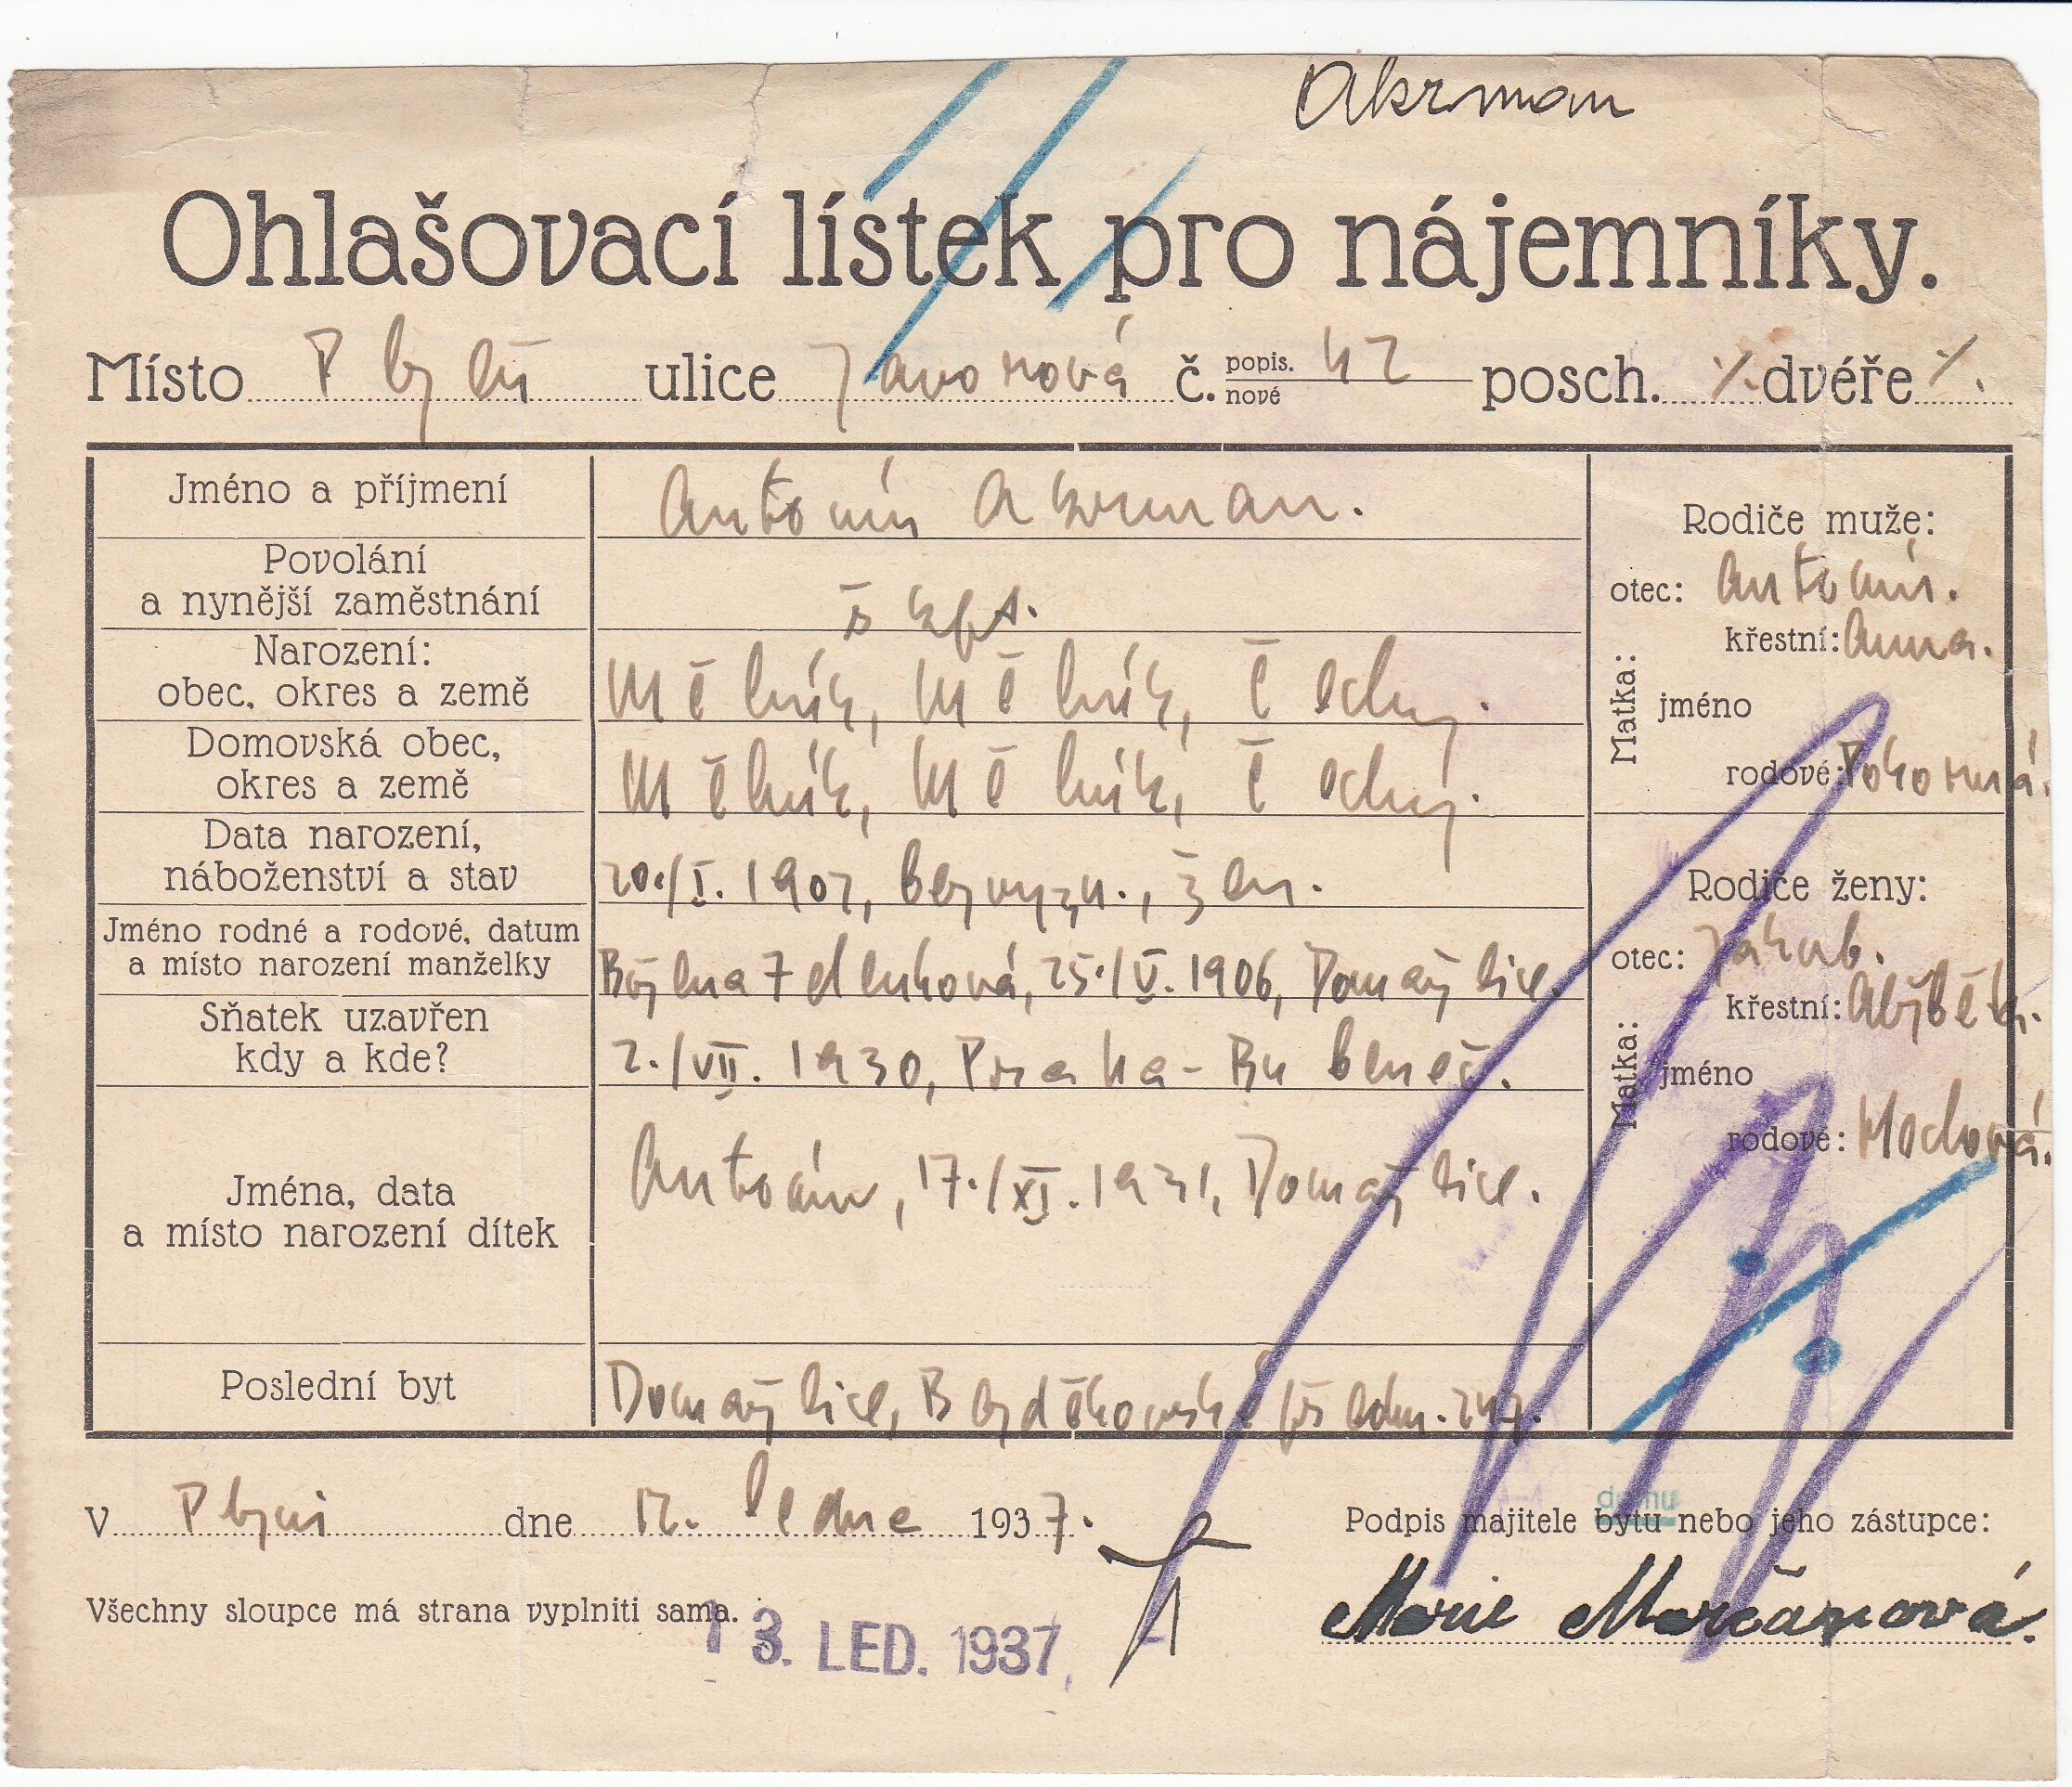 Akrman
Ohlašovací lístek pro nájemníky.
Místo Plzeň ulice Javorová č. popis. nové 42 posch. ⁒ dvéře ⁒.
Jméno a příjmení Antonín Akrman.
Povolání
a nynější zaměstnání škpt.
Narození:
obec, okres a země Mělník, Mělník, Čechy.
Domovská obec,
okres a země Mělník, Mělník, Čechy.
Data narození,
náboženství a stav 20./I. 1902, bez vyzn., žen.
Jméno rodné a rodové, datum
a místo narození manželky Božena Zdenková, 25./V. 1906, Domažlice.
Sňatek uzavřen
kdy a kde? 2./VII. 1930, Praha - Bubeneč.
Jména, data
a místo narození dítek Antonín, 17./XI. 1931, Domažlice.
Poslední byt Domažlice, Bezděkovské předm. 247.
Rodiče muže:
otec: Antonín.
Matka:
křestní: Anna.
jméno
rodové: Pokorná.
Rodiče ženy:
otec: Jakub.
Matka:
křestní: Alžběta.
jméno
rodové: Hochová.
V Plzni dne 12. ledna 1937.
Podpis majitele bytu nebo jeho zástupce:
domu
Marie Morčanová.
Všechny sloupce má strana vyplniti sama.
13. LED. 1937